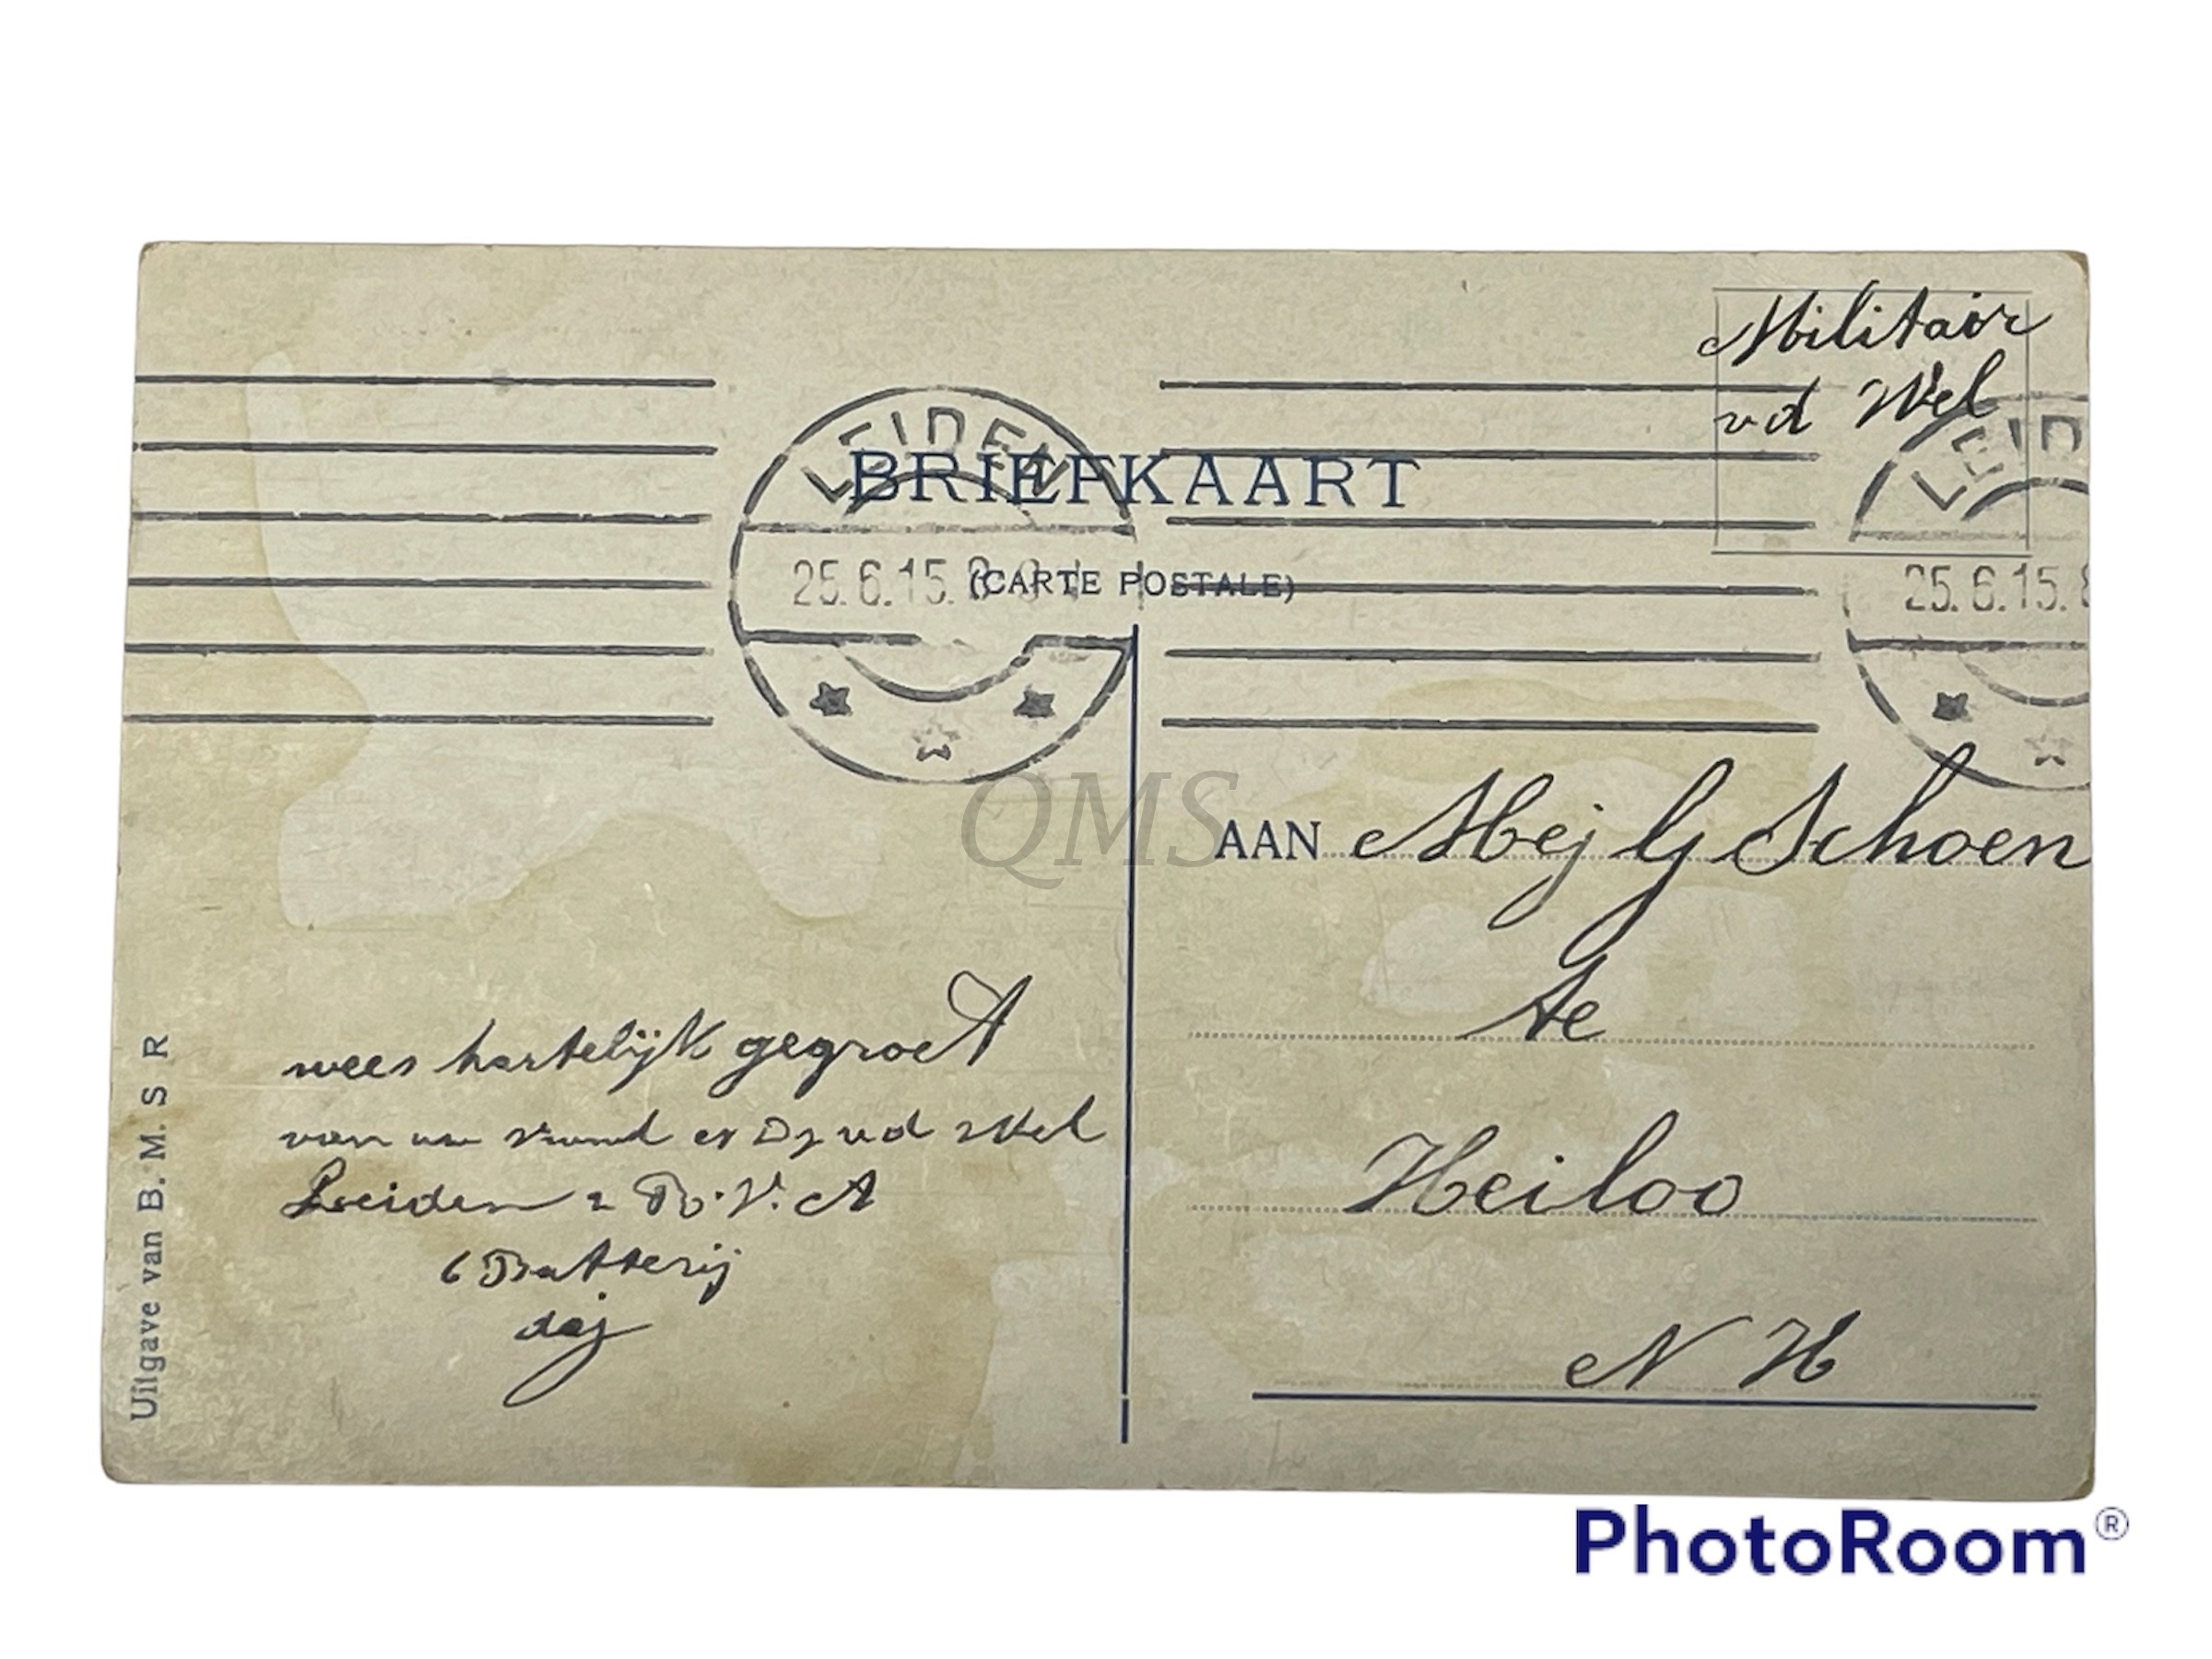 Militair
vd Wel
LEIDEN
LEID
BRIEFKAART
25.6.15.8
25.6.15.8
(CARTE POSTALE)
QMS
AAN Mej G Schoen
te
Heiloo
N H
wees hartelijk gegroet
van uw vriend vd Wel
Leiden 2 R.V.A
6 Batterij
daj
Uitgave van B. M. S R
PhotoRoom®